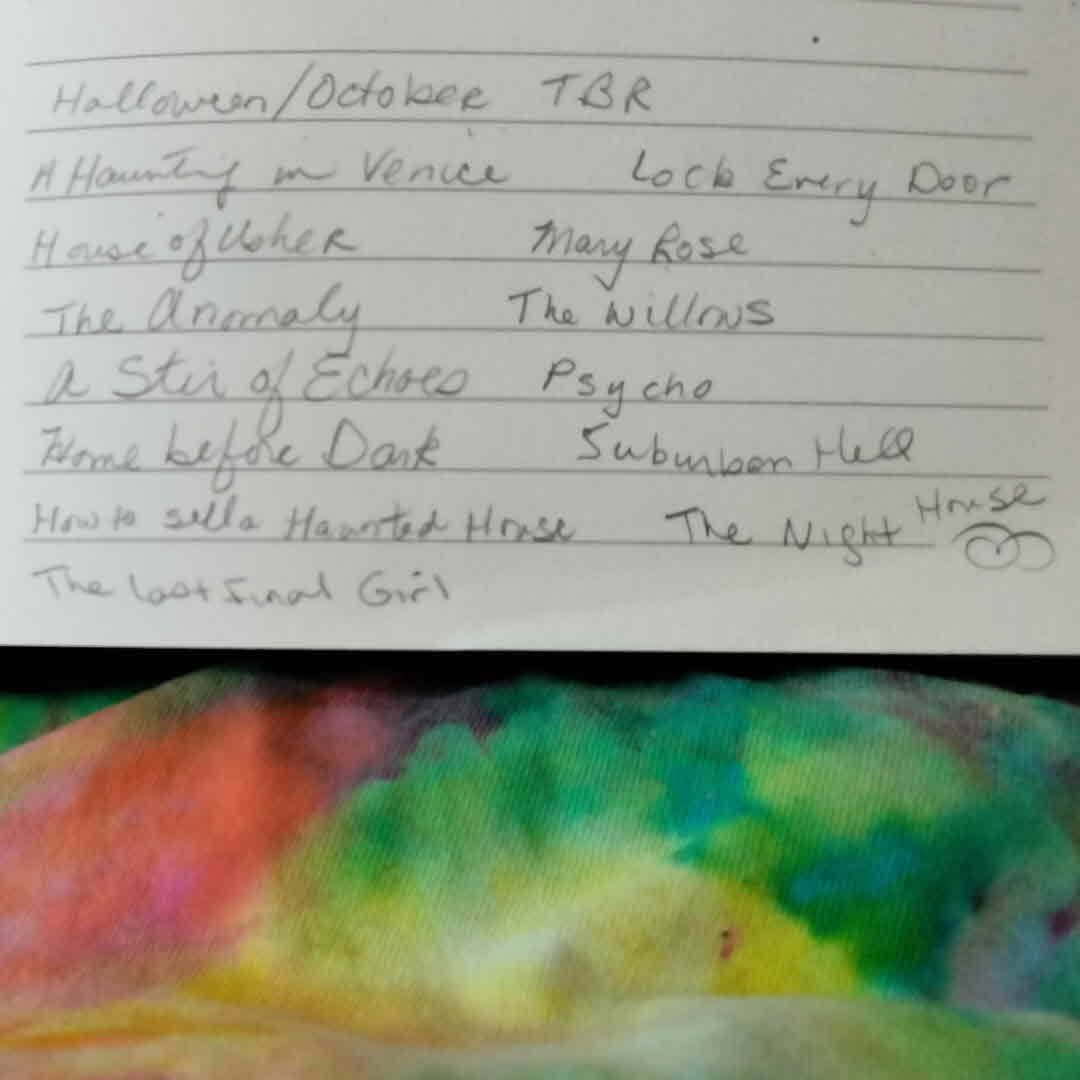 Halloween/October TBR
A Haunting in Venice Lock Every Door
House of Usher Mary Rose
The Anomaly The Willows
A Stir of Echoes Psycho
Home before Dark Suburban Hell
How to sell a Haunted House The Night House
The Last Final Girl